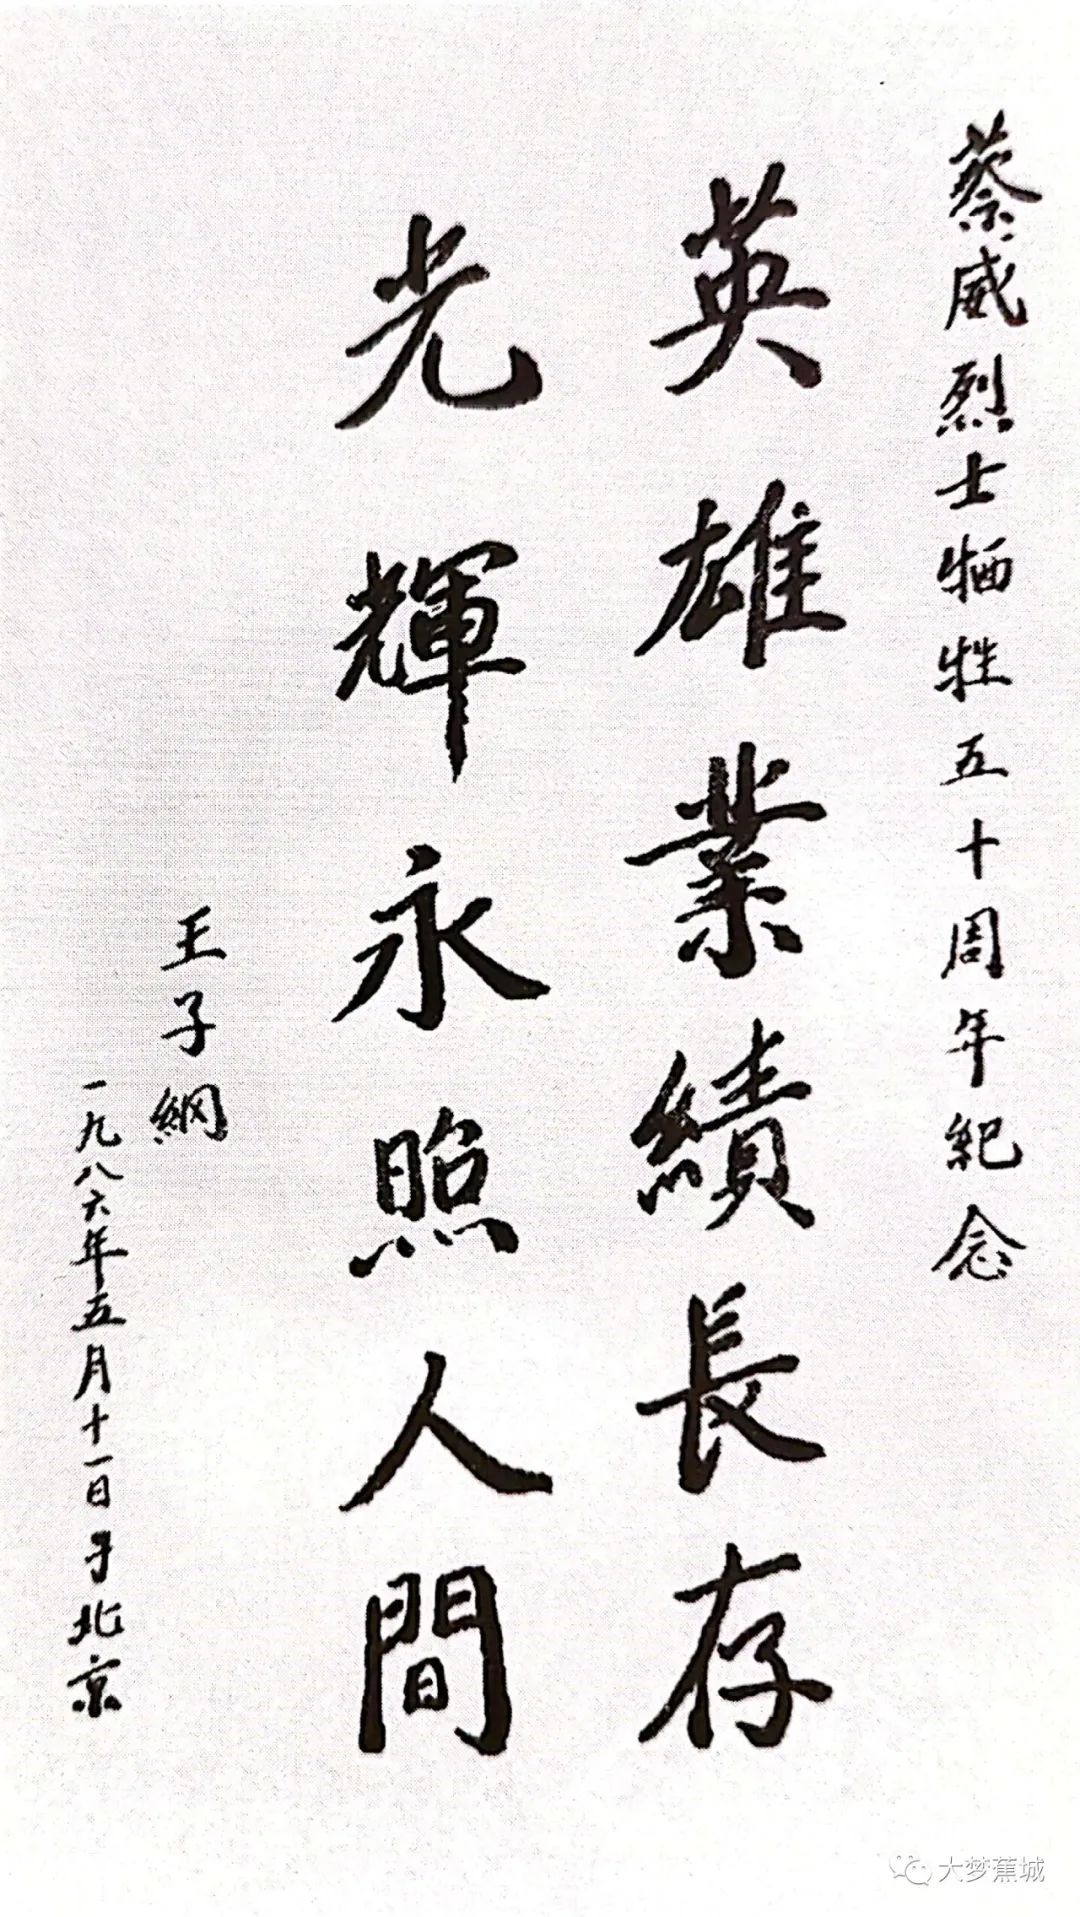 蔡威烈士牺牲五十周年纪念
英雄業績長存
光輝永照人間
王子綱
一九八六年五月十一日于北京
大梦蕉城